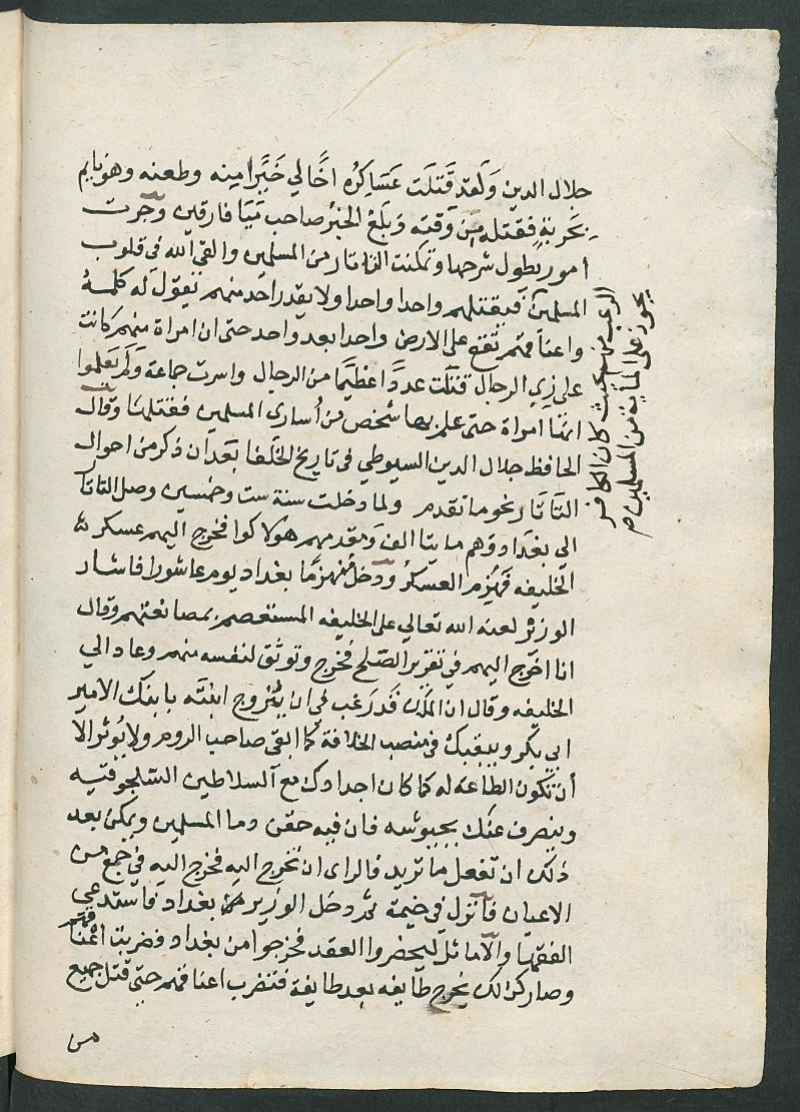 جلال الدين ولقد قتلت عساكره اخا لي خيرا مينه وطعنه وهو نايم
بحربة فقتله من وقته وبلغ الخبر صاحب ميا فارقين وجرت
أمور يطول شرحها وتمكنت التاتار من المسلمين والقى الله في قلوب
المسلمين الرعب منهم بحيث كان الكافر يجوز على الماية من المسلمين
فيقتلهم واحدا واحدا ولا يقدر احد منهم يقول له كلمة
واعناقهم تقع على الارض واحدا بعد واحد حتى ان امراة منهم كانت
على زي الرجال قتلت عددا عظيما من الرجال واسرت جماعة ولم يعلموا
انها امراة حتى علم بها شخص من أسارى المسلمين فقتلها وقال
الحافظ جلال الدين السيوطي في تاريخ الخلفا بعد ان ذكر من احوال
التاتار نحو ما تقدم ولما دخلت سنة ست وخمسين وصل التاتار
الي بغداد وهم مايتا الف ومقدمهم هولاكوا فخرج اليهم عسكر
الخليفه فهزم العسكر ودخل منهزما بغداد يوم عاشورا فاشار
الوزير لعنه الله تعالي على الخليفه المستعصم بمصانعتهم وقال
انا اخرج اليهم في تقرير الصلح فخرج وتوثق لنفسه منهم وعاد الي
الخليفه وقال ان الملك قد رغب في ان يتزوج ابنته بابنك الامير
ابي بكر ويبقيك في منصب الخلافة كما ابقى صاحب الروم ولا يوثر الا
أن تكون الطاعة له كما كان اجدادك مع السلاطين السلجوقيه
وينصرف عنك بجيوشه فان فيه حقن دما المسلمين ويمكن بعد
ذلك ان تفعل ما تريد فالراى ان تخرج اليه فخرج اليه في جمع من
الاعيان فانزل في خيمة ثم دخل الوزير بغداد فاستدعي
الفقها والاماثل ليحضروا العقد فخرجوا من بغداد فضربت اعناقهم
وصار كذالك يخرج طايفه بعد طايفة فتضرب اعناقهم حتى قتل جميع
من